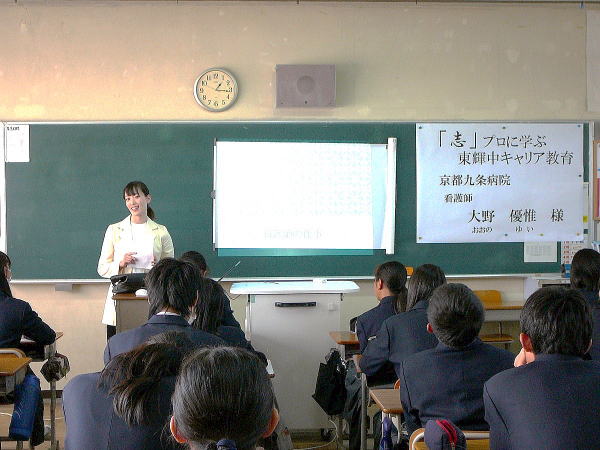 「志」プロに学ぶ
東輝中キャリア教育
京都九条病院
看護師
大野 優惟 様
おおの ゆい